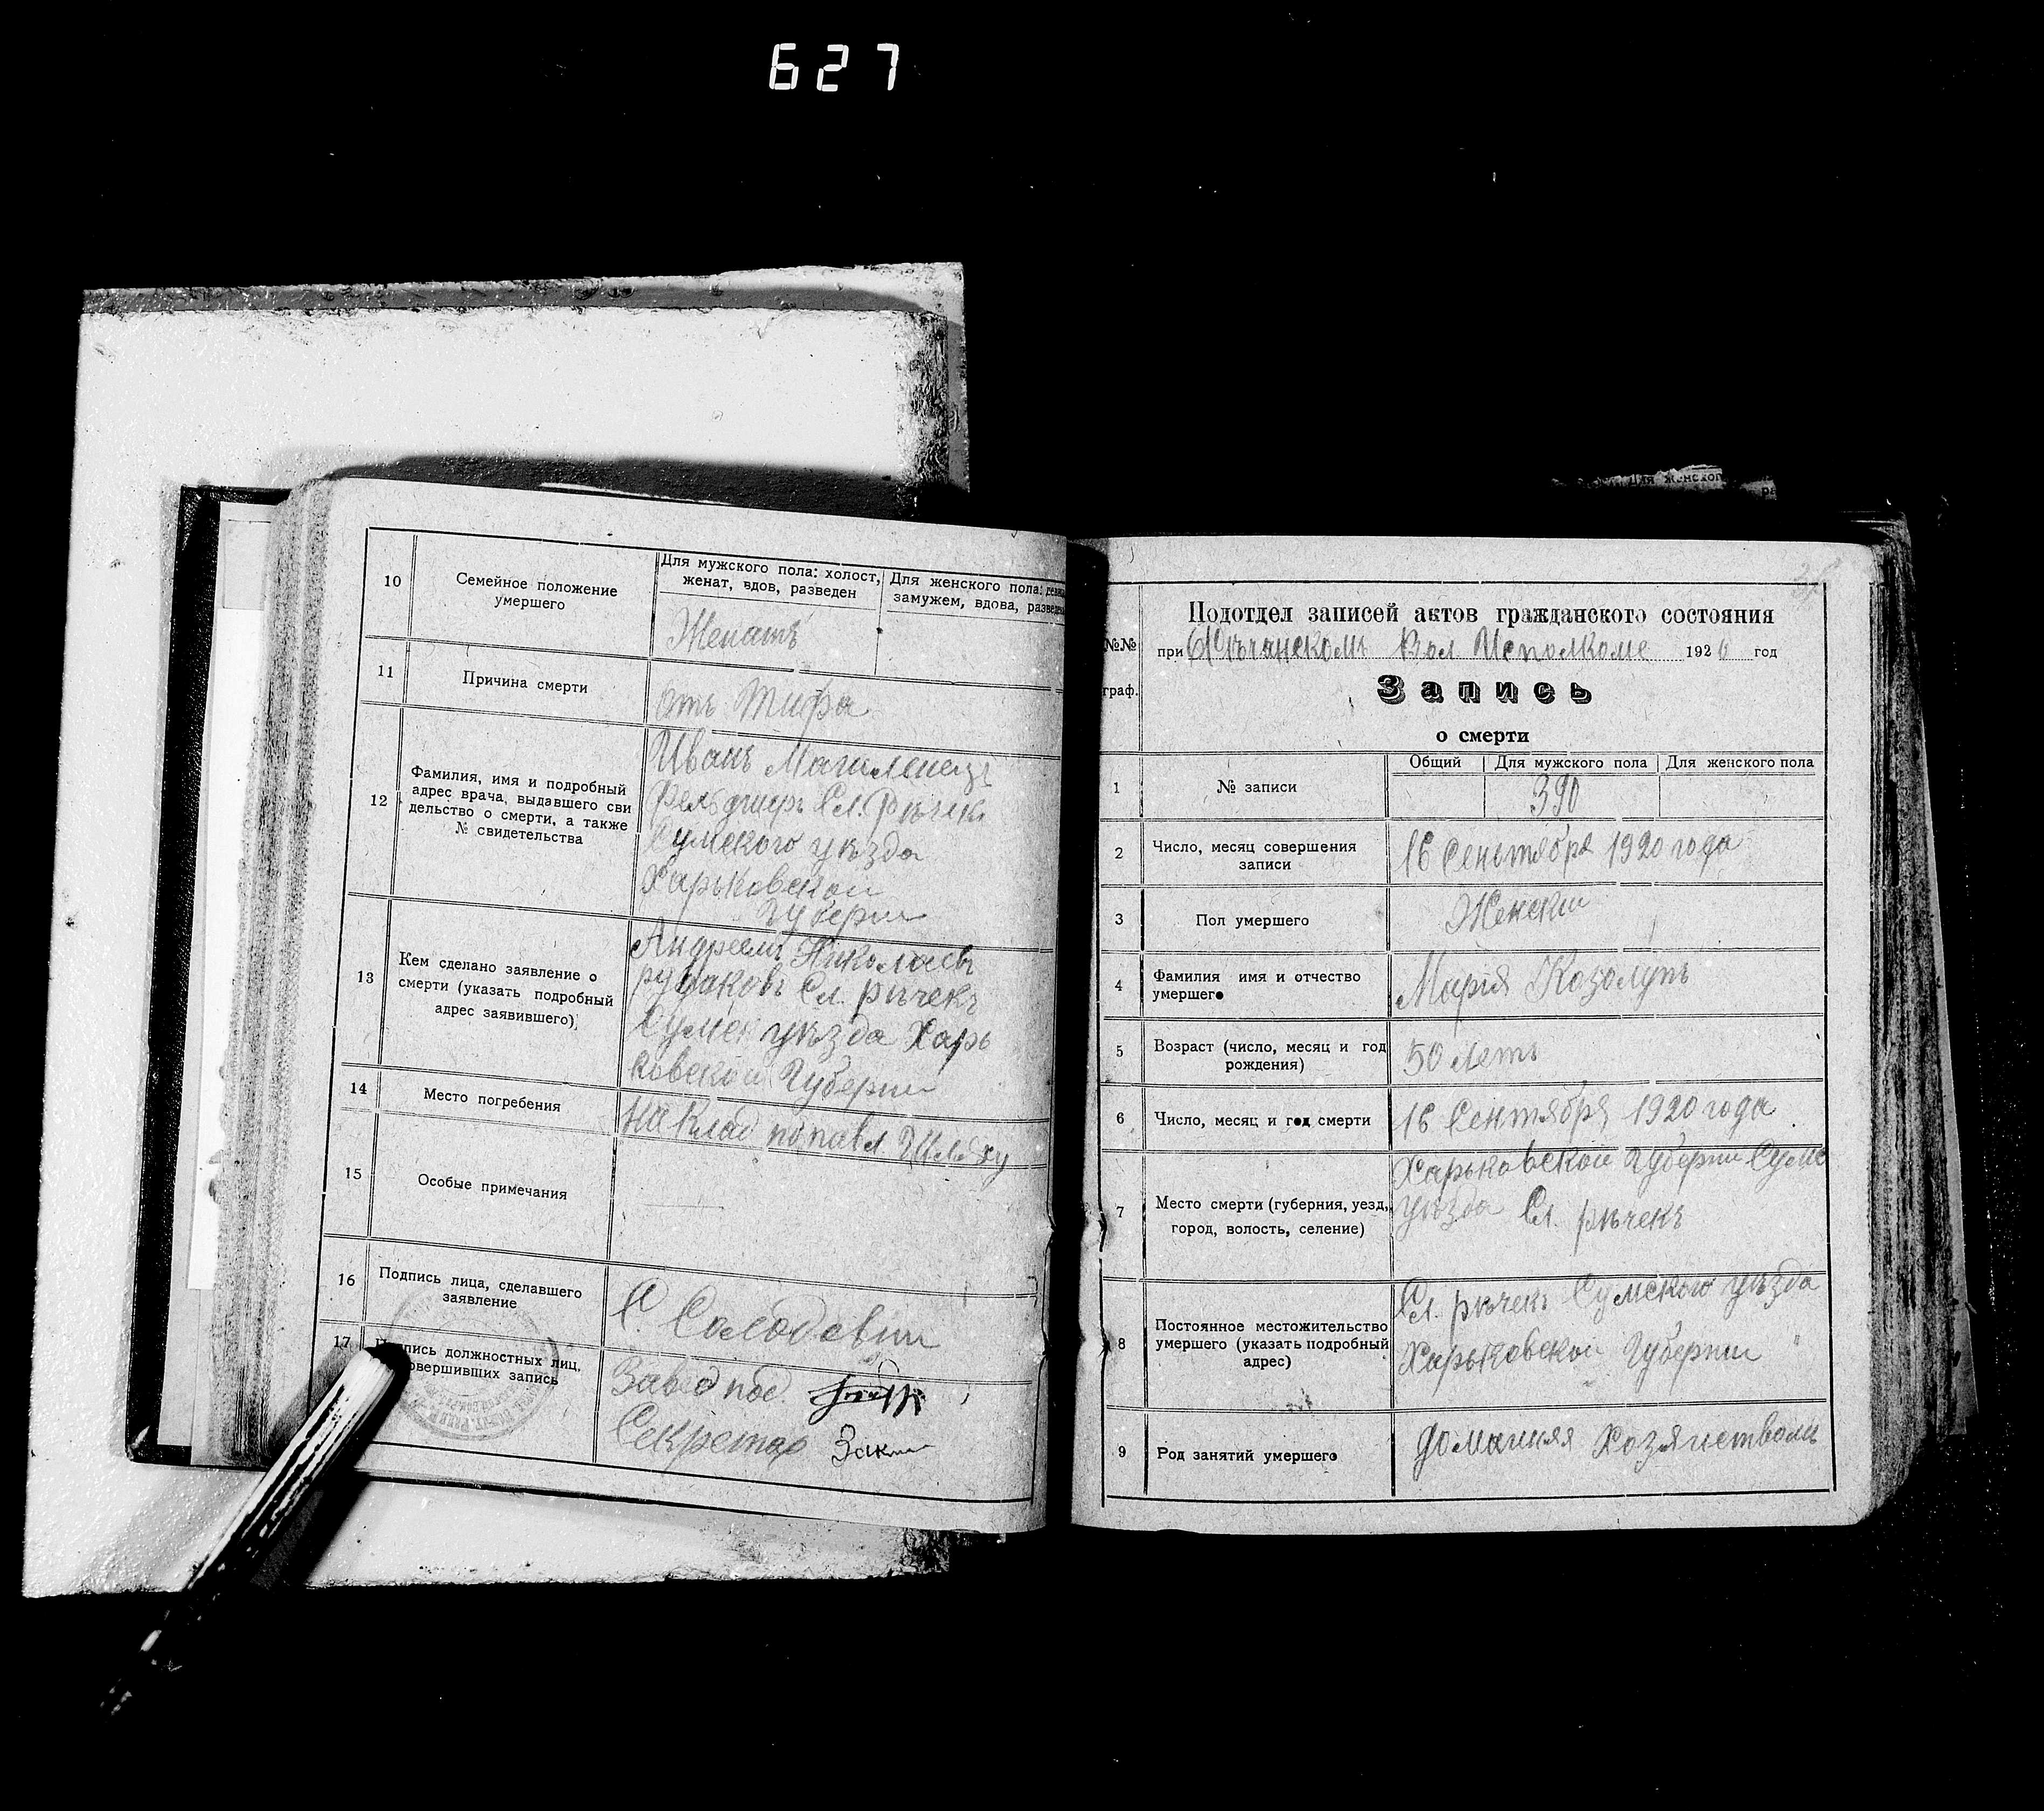 627
10
Семейное положение
умершего
Для мужского пола: холост,
женат, вдов, разведен
Для женского пола:
замужем, вдова,
Женатъ
11
Причина смерти
отъ Тифа
12
Фамилия, имя и подробный
адрес врача, выдавшего сви
дельство о смерти, а также
№ свидетельства
Иванъ
фельдшеръ Сл. Рѣчки
Сумского уѣзда
Харьковской
Губерни
13
Кем сделано заявление о
смерти (указать подробный
адрес заявившего)
Андреемъ Николаевъ
Сл. рѣчекъ
Сумск уѣзда Харь
ковской Губерни
14
Место погребения
на Клад попавл. Шляху
15
Особые примечания
16
Подпись лица, сделавшего
заявление
С.
17
должностных лиц,
совершивших запись
Завед под.
Секретар
№№
граф.
Подотдел записей актов гражданского состояния
при Вол. Исполкоме 1920 год
Запись
о смерти
1
№ записи
Общий
Для мужского пола
Для женского пола
390
2
Число, месяц совершения
записи
16 Сеньтября 1920 года
3
Пол умершего
Женски
4
Фамилия имя и отчество
умершего
Марія Козолупъ
5
Возраст (число, месяц и год
рождения)
50 летъ
6
Число, месяц и год смерти
16 Сентября 1920 года
7
Место смерти (губерния, уезд,
город, волость, селение)
Харьковской Губерни Сумс
уѣзда Сл. рѣчекъ
8
Постоянное местожительство
умершего (указать подробный
адрес)
Сл. рѣчекъ Сумского уѣзда
Харьковской Губернии
9
Род занятий умершего
домашняя Хозяйством